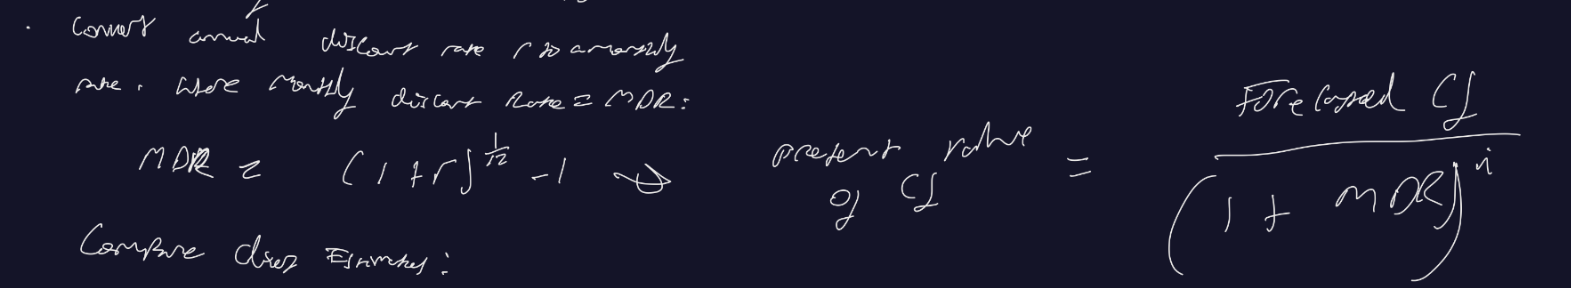 · Convert annual discount rate r to a monthly
rate. Where Monthly discount Rate = MDR:
MDR = (1 + r)^{1/12} - 1 → present value of CF = Forecasted CF / (1 + MDR)^i
Compare Estimates: